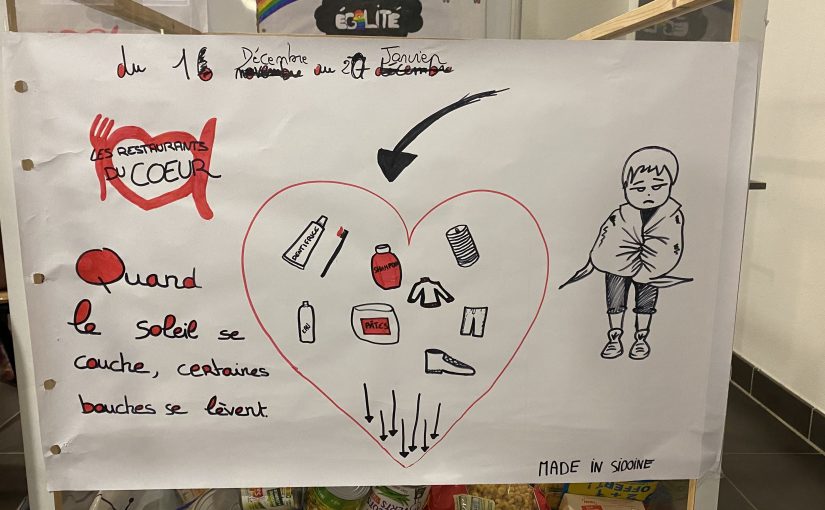 ÉGALITÉ
du 16 Décembre au 27 Janvier
LES RESTAURANTS
DU COEUR
DENTIFRICE
SHAMPOO
EAU
PÂTES
Quand
le soleil se
couche, certaines
bouches se lèvent.
MADE IN SIDOINE
OFFERT